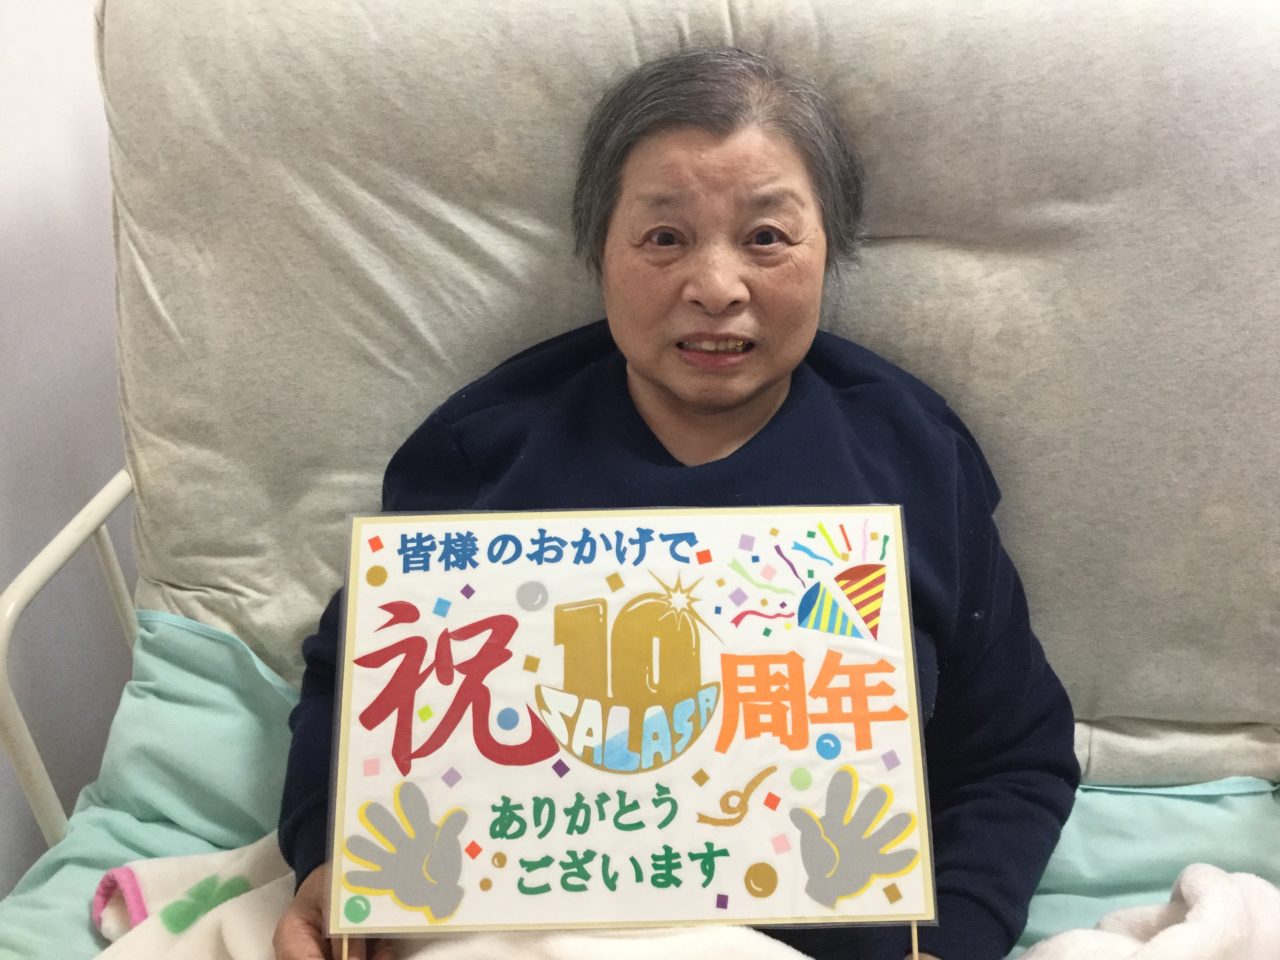 皆様のおかげで
祝10周年
SALASA
ありがとう
ございます